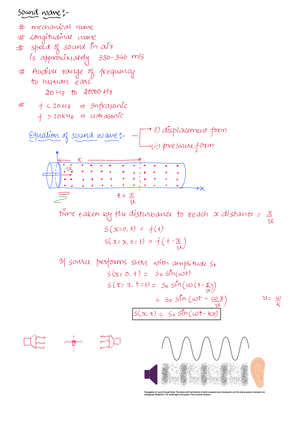 Sound wave:-
# mechanical wave
# Longitudinal wave
# speed of sound in air
is approximately 330-340 m/s
# Audible range of frequency
to human ear:
20 Hz to 20000 Hz
# f < 20Hz ⇒ Infrasonic
f > 20KHz ⇒ ultrasonic
Equation of sound wave:-
(i) displacement form
(ii) pressure form
x
x
t = x/v
Time taken by the disturbance to reach x distance = x/v
S(x=0, t) = f(t)
S(x=x, t=t) = f(t - x/v)
If source performs SHM with amplitude S₀
S(x=0, t) = S₀ sin(ωt)
S(x=x, t=t) = S₀ sin(ω(t - x/v))
= S₀ sin(ωt - ωx/v)
v = ω/k
S(x,t) = S₀ sin(ωt - kx)